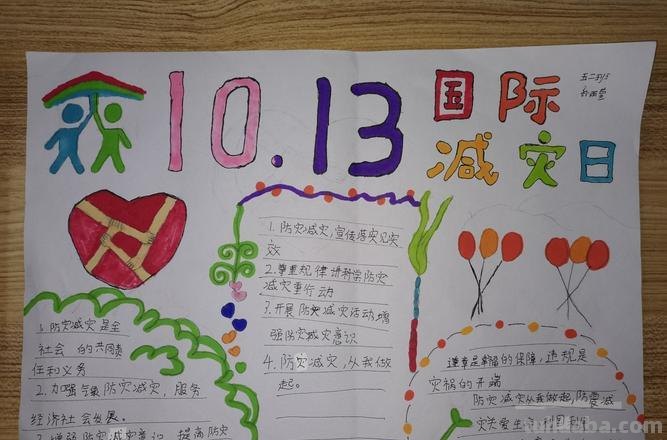 10.13 国际
减灾日
五二班
1. 防灾减灾,宣传落实见实
效
2. 尊重规律讲科学防灾
减灾重行动
3. 开展防灾减灾活动,增
强防灾减灾意识
4. 防灾减灾,从我做
起。
1. 防灾减灾是全
社会 的共同责
任和义务
2. 加强气象防灾减灾,服务
经济社会发展。
3 增强防灾减灾意识 提高防灾
遵章是幸福的保障,违规是
灾祸的开端
防灾减灾从我做起,防震减
灾关爱生命 利国利民